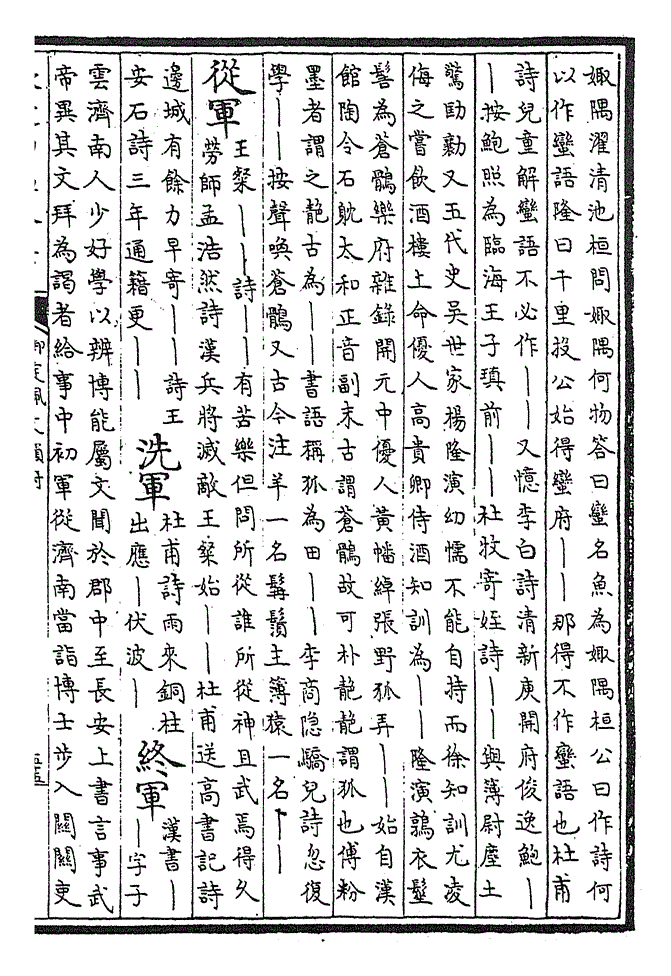 娵隅濯清池桓問娵隅何物答曰蠻名魚為娵隅桓公曰作詩何
以作蠻語隆曰千里投公始得蠻府｜｜那得不作蠻語也杜甫
詩兒童解蠻語不必作｜｜又憶李白詩清新庾開府俊逸鮑｜
｜按鮑照為臨海王子瑱前｜｜杜牧寄姪詩｜｜與簿尉塵土
驚劻勷又五代史吳世家楊隆演幼懦不能自持而徐知訓尤凌
侮之嘗飲酒樓上命優人高貴卿侍酒知訓為｜｜隆演鶉衣髽
髻為蒼鶻樂府雜錄開元中優人黃幡綽張野狐弄｜｜始自漢
館陶令石躭太和正音副末古謂蒼鶻故可朴靘靘謂狐也傅粉
墨者謂之靘古為｜｜書語稱狐為田｜｜李商隱驕兒詩忽復
學｜｜按聲喚蒼鶻又古今注羊一名髯鬚主簿猿一名｜｜
從軍
王粲｜｜｜詩｜｜有苦樂但問所從誰所從神且武焉得久
勞師孟浩然詩漢兵將滅敵王粲始｜｜杜甫送高書記詩
邊城有餘力早寄｜｜詩王
安石詩三年通籍更｜｜
洗軍
杜甫詩雨來銅柱
出應｜伏波｜
終軍
漢書｜
｜字子
雲濟南人少好學以辨博能屬文聞於郡中至長安上書言事武
帝異其文拜為謁者給事中初軍從濟南當詣博士步入關關吏
御定佩文韻府